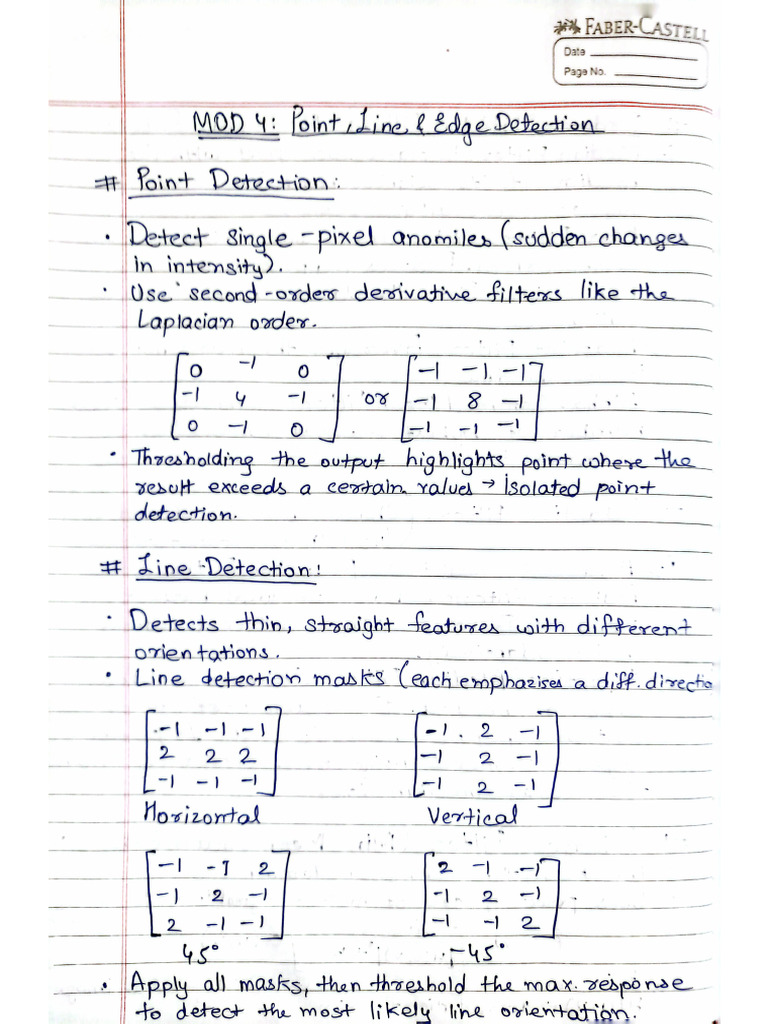 FABER-CASTELL
Date
Page No.
MOD 4: Point, Line, & Edge Detection
# Point Detection:
· Detect single-pixel anomiles (sudden changes
in intensity).
· Use second-order derivative filters like the
Laplacian order.
0 -1 0 -1 -1 -1
-1 4 -1 or -1 8 -1
0 -1 0 -1 -1 -1
· Thresholding the output highlights point where the
result exceeds a certain values → isolated point
detection.
# Line Detection:
· Detects thin, straight features with different
orientations.
· Line detection masks (each emphazises a diff. directio
-1 -1 -1 -1 2 -1
2 2 2 -1 2 -1
-1 -1 -1 -1 2 -1
Horizontal Vertical
-1 -1 2 2 -1 -1
-1 2 -1 -1 2 -1
2 -1 -1 -1 -1 2
45° -45°
· Apply all masks, then threshold the max. response
to detect the most likely line orientation.